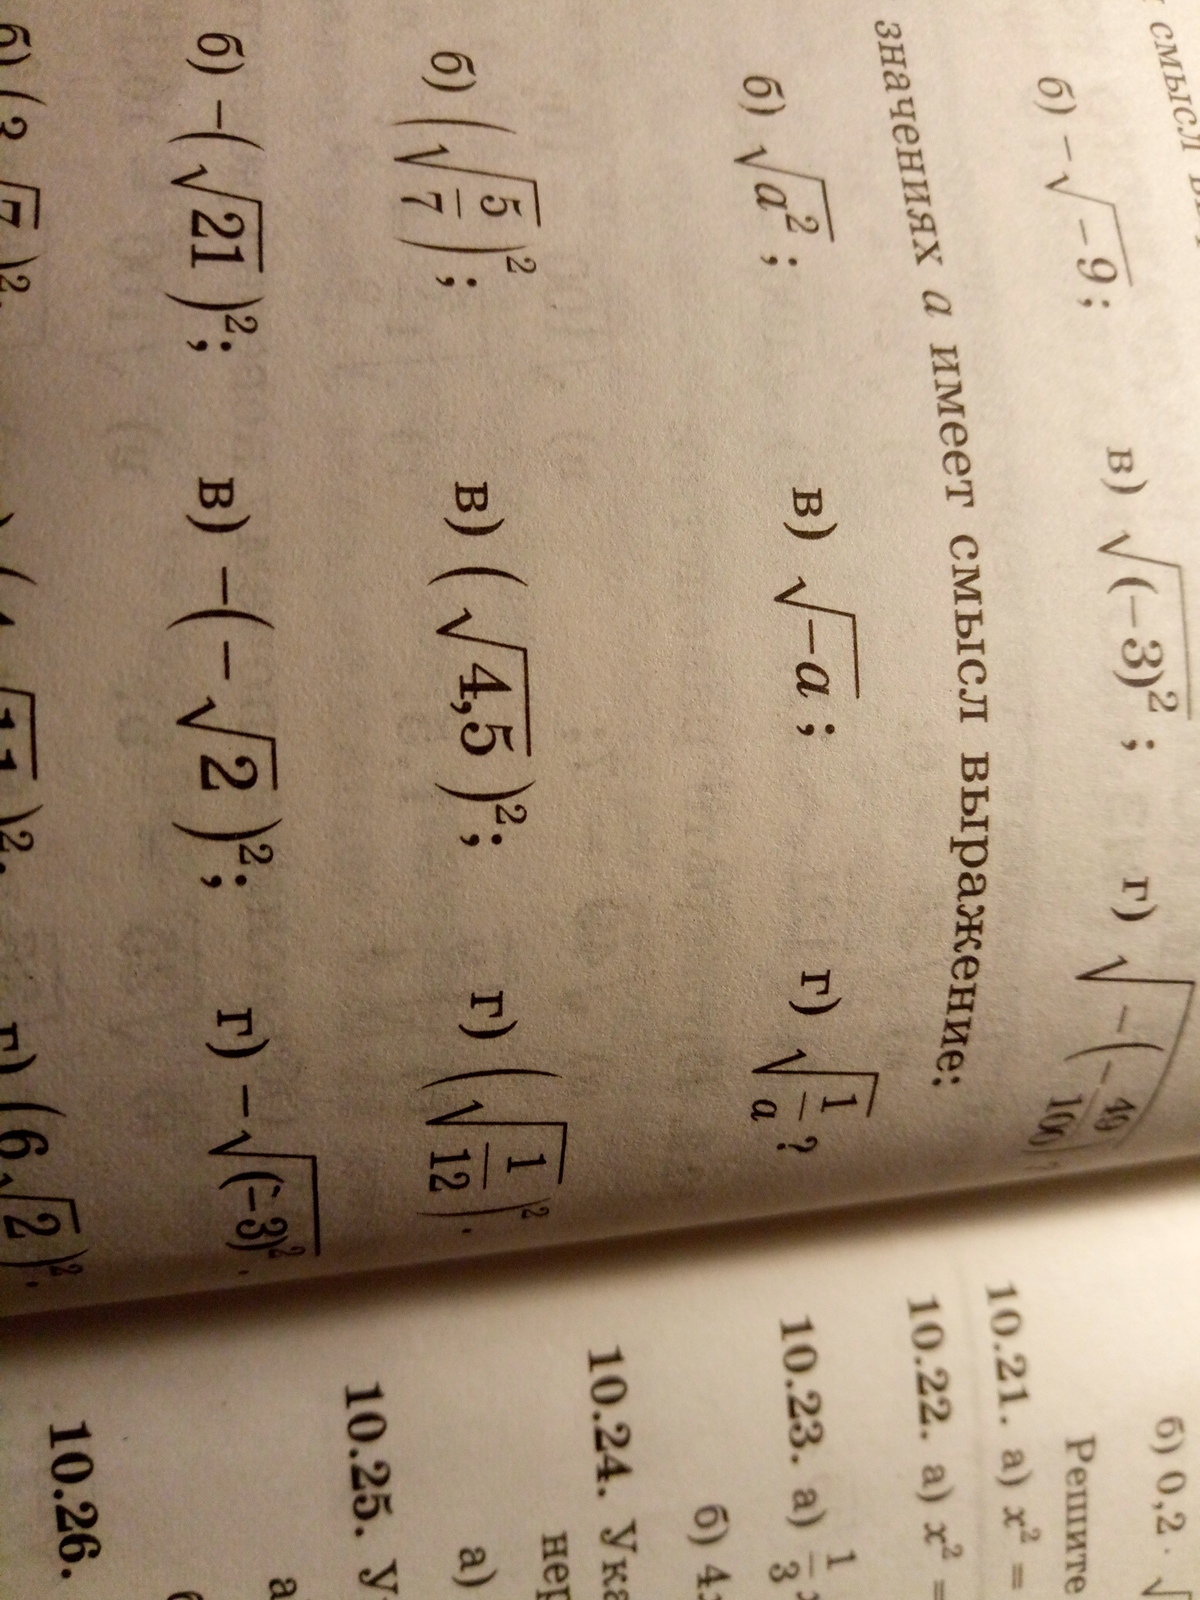 смысл
б) −√−9; в) √(−3)²; г) √−(−49/100)
значениях a имеет смысл выражение:
б) √a²; в) √−a; г) √1/a?
б) (√5/7)²; в) (√4,5)²; г) (√1/12)².
б) −(√21)²; в) −(−√2)²; г) −√(−3)².
б) (3√7)². (4√11)². г) (6√2)².
б) 0,2 · √
Решите
10.21. а) x² =
10.22. а) x² =
10.23. а) 1/3
б) 4
10.24. Ука
нер
10.25. У
а)
а
10.26.